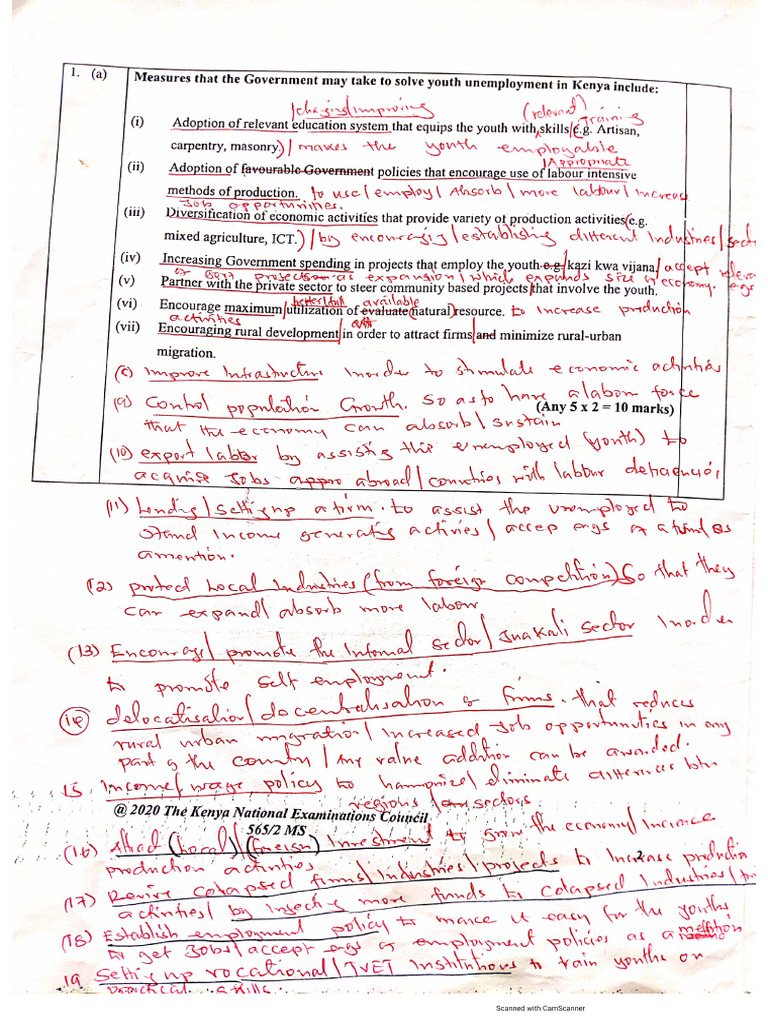 1. (a) Measures that the Government may take to solve youth unemployment in Kenya include:
/changing/improving (relevant) Training
(i) Adoption of relevant education system that equips the youth with skills/(e.g. Artisan,
carpentry, masonry)/makes the youth employable
/Appropriate
(ii) Adoption of favourable Government policies that encourage use of labour intensive
methods of production. to use/employ/Absorb/more labour/increase
Job opportunities.
(iii) Diversification of economic activities that provide variety of production activities(e.g.
mixed agriculture, ICT.)/by encouraging/establishing different Industries/sect
(iv) Increasing Government spending in projects that employ the youth e.g./kazi kwa vijana./accept
expansion/which expands size of economy.
(v) Partner with the private sector to steer community based projects/that involve the youth.
better/full available
(vi) Encourage maximum/utilization of evaluate(natural)resource. to increase production
activities
(vii) Encouraging rural development/in order to attract firms/and minimize rural-urban
migration.
(8) Improve Infrastructure Inorder to stimulate economic activities
(9) Control population Growth. so as to have a labour force
(Any 5 x 2 = 10 marks)
that the economy can absorb/sustain
(10) export labor by assisting the unemployed (youth) to
acquire Jobs appro abroad/countries with labour deficiencies
(11) Lending/Setting up a firm. to assist the unemployed to
stand income generating activies/accep egs of a fund as
a mention.
(12) protect Local Industries (from foreign competition) So that they
can expand/absorb more labour
(13) Encourage/promote the Informal sector/Juakali sector Inorder
to promote self employment.
(14) delocalisation/decentralisation of firms. that reduces
rural urban migration/Increased Job opportunities in any
part of the country/Any value addition can be awarded.
15. Income/wage policy to harmonize/eliminate differences btn
regions/sectors
@ 2020 The Kenya National Examinations Council
565/2 MS
(16) Attract (Local)/(foreign) Investment to grow the economy/increase
2
production activities
(17) Revive colapsed firms/Industries/projects to Increase production
activities/by injecting more funds to colapsed Industries/
(18) Establish employment policy to make it easy for the youths
to get Jobs/accept egs of employment policies as a mention
19 Setting up vocational/TVET Institutions to train youths on
practical skills.
Scanned with CamScanner